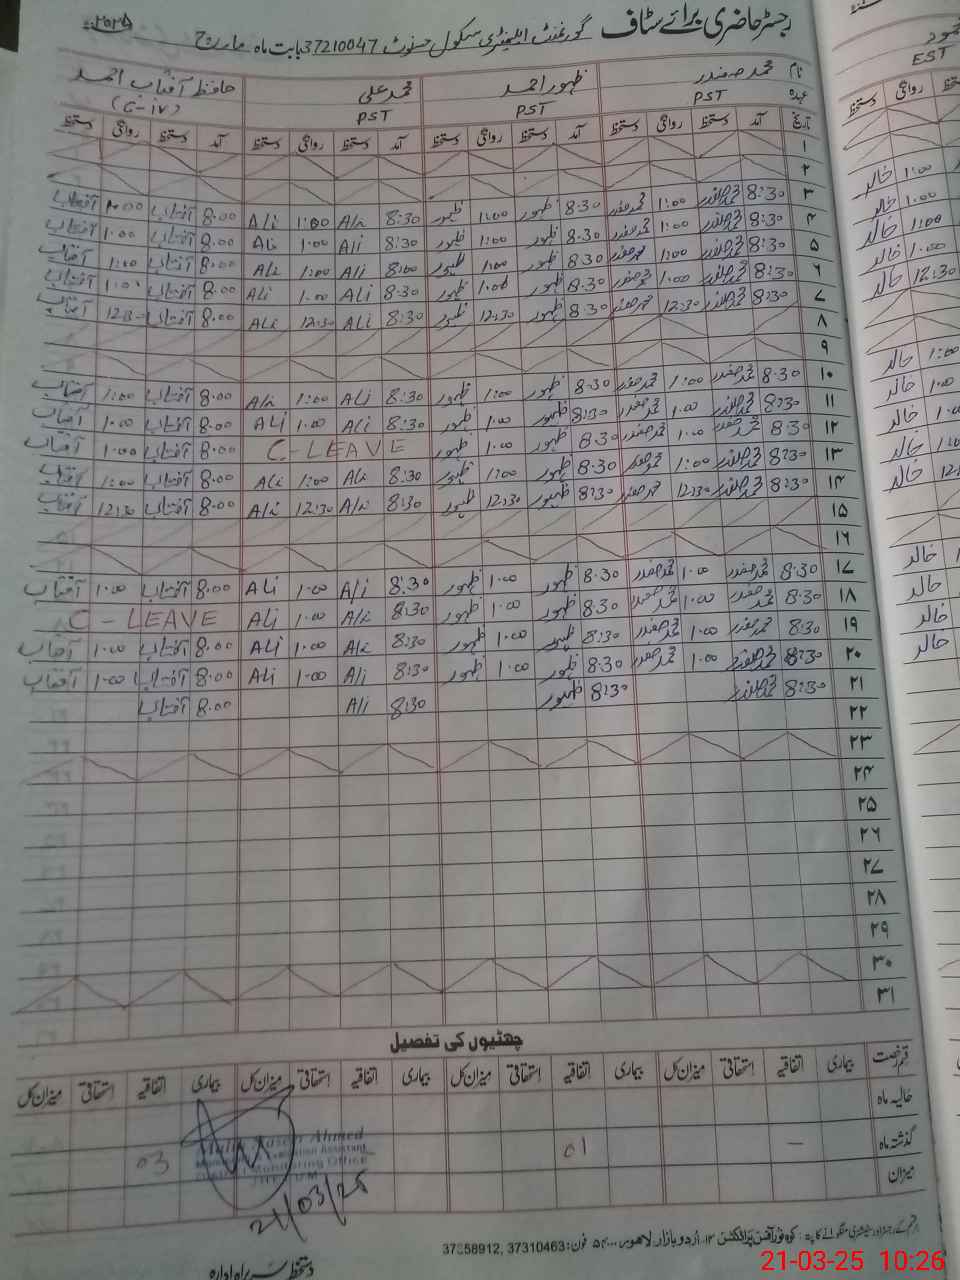 رجسٹر حاضری برائے سٹاف گورنمنٹ ایلیمنٹری سکول حسنوٹ 37210047 بابت ماہ مارچ ۲۰۲۵
نام محمد صفدر ظہور احمد محمد علی حافظ آفتاب احمد
عہدہ PST PST PST (C-iv)
تاریخ آمد دستخط روانگی دستخط آمد دستخط روانگی دستخط آمد دستخط روانگی دستخط آمد دستخط روانگی دستخط
۱
۲
۳ 8:30 محمد صفدر 1:00 محمد صفدر 8:30 ظہور 1:00 ظہور 8:30 Ali 1:00 Ali 8:00 آفتاب 1:00 آفتاب
۴ 8:30 محمد صفدر 1:00 محمد صفدر 8:30 ظہور 1:00 ظہور 8:30 Ali 1:00 Ali 8:00 آفتاب 1:00 آفتاب
۵ 8:30 محمد صفدر 1:00 محمد صفدر 8:30 ظہور 1:00 ظہور 8:00 Ali 1:00 Ali 8:00 آفتاب 1:00 آفتاب
۶ 8:30 محمد صفدر 1:00 محمد صفدر 8:30 ظہور 1:00 ظہور 8:30 ALi 1:00 ALi 8:00 آفتاب 1:00 آفتاب
۷ 8:30 محمد صفدر 12:30 محمد صفدر 8:30 ظہور 12:30 ظہور 8:30 ALi 12:30 ALi 8:00 آفتاب 12:30 آفتاب
۸
۹
۱۰ 8:30 محمد صفدر 1:00 محمد صفدر 8:30 ظہور 1:00 ظہور 8:30 ALi 1:00 Ali 8:00 آفتاب 1:00 آفتاب
۱۱ 8:30 محمد صفدر 1:00 محمد صفدر 8:30 ظہور 1:00 ظہور 8:30 ALi 1:00 ALi 8:00 آفتاب 1:00 آفتاب
۱۲ 8:30 محمد صفدر 1:00 محمد صفدر 8:30 ظہور 1:00 ظہور C-LEAVE 8:00 آفتاب 1:00 آفتاب
۱۳ 8:30 محمد صفدر 1:00 محمد صفدر 8:30 ظہور 1:00 ظہور 8:30 Ali 1:00 ALi 8:00 آفتاب 1:00 آفتاب
۱۴ 8:30 محمد صفدر 12:30 محمد صفدر 8:30 ظہور 12:30 ظہور 8:30 Ali 12:30 Ali 8:00 آفتاب 12:30 آفتاب
۱۵
۱۶
۱۷ 8:30 محمد صفدر 1:00 محمد صفدر 8:30 ظہور 1:00 ظہور 8:30 Ali 1:00 ALi 8:00 آفتاب 1:00 آفتاب
۱۸ 8:30 محمد صفدر 1:00 محمد صفدر 8:30 ظہور 1:00 ظہور 8:30 Ali 1:00 ALi C-LEAVE
۱۹ 8:30 محمد صفدر 1:00 محمد صفدر 8:30 ظہور 1:00 ظہور 8:30 Ali 1:00 ALi 8:00 آفتاب 1:00 آفتاب
۲۰ 8:30 محمد صفدر 1:00 محمد صفدر 8:30 ظہور 1:00 ظہور 8:30 ALi 1:00 ALi 8:00 آفتاب 1:00 آفتاب
۲۱ 8:30 محمد صفدر 8:30 ظہور 8:30 Ali 8:00 آفتاب
۲۲
۲۳
۲۴
۲۵
۲۶
۲۷
۲۸
۲۹
۳۰
۳۱
چھٹیوں کی تفصیل
قسم رخصت بیماری اتفاقیہ استحقاقی میزان کل بیماری اتفاقیہ استحقاقی میزان کل بیماری اتفاقیہ استحقاقی میزان کل بیماری اتفاقیہ استحقاقی میزان کل
حالیہ ماہ
گذشتہ ماہ — 01 03
میزان
Ahmed
Assistant
Monitoring Office
21/03/25
اردو بازار لاہور فون: 37310463, 37358912
دستخط سربراہ ادارہ
EST
آمد دستخط روانگی
خالد 1:00
خالد 1:00
خالد 1:00
خالد 1:00
خالد 12:30
خالد 1:00
خالد 1:00
خالد
خالد
خالد
خالد
خالد
خالد
خالد
21-03-25 10:26